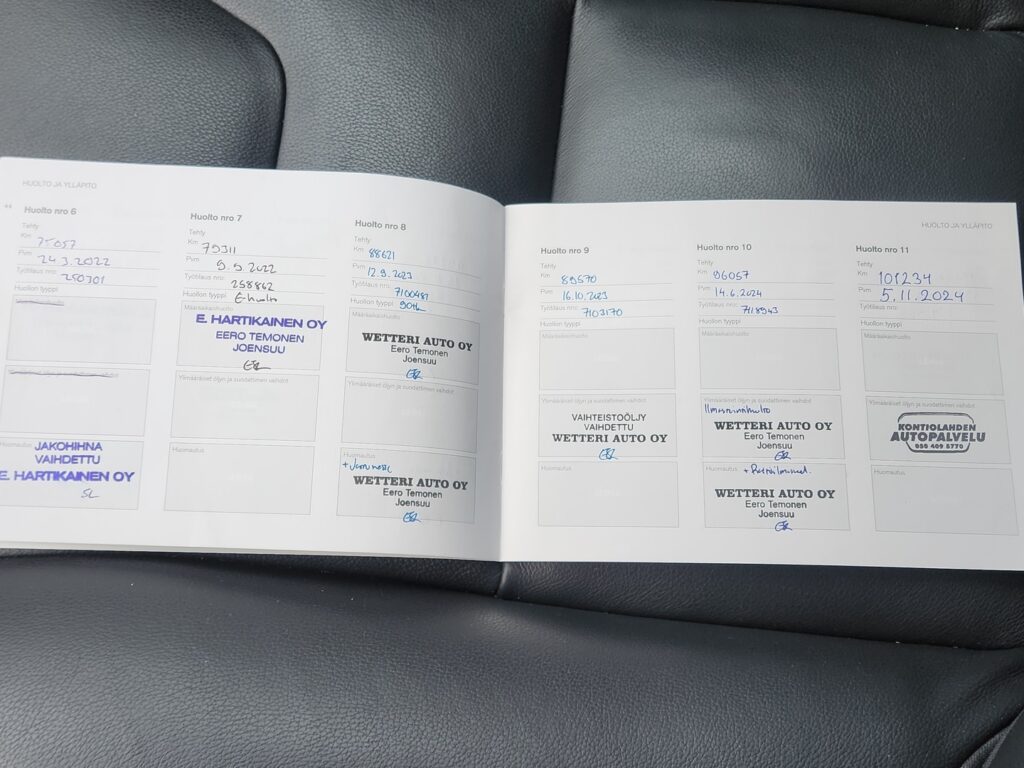 HUOLTO JA YLLÄPITO
Huolto nro 6
Tehty
Km 75057
Pvm 24.3.2022
Työtilaus nro: 250301
Huollon tyyppi
JAKOHIHNA
VAIHDETTU
E. HARTIKAINEN OY
SL
Huomautus
Huolto nro 7
Tehty
Km 79311
Pvm 9.5.2022
Työtilaus nro: 258862
Huollon tyyppi E-huolto
Määräaikaishuolto
E. HARTIKAINEN OY
EERO TEMONEN
JOENSUU
Ylimääräiset öljyn ja suodattimen vaihdot
Huomautus
Huolto nro 8
Tehty
Km 88621
Pvm 12.9.2023
Työtilaus nro: 7100481
Huollon tyyppi
Määräaikaishuolto
WETTERI AUTO OY
Eero Temonen
Joensuu
Ylimääräiset öljyn ja suodattimen vaihdot
Huomautus
WETTERI AUTO OY
Eero Temonen
Joensuu
HUOLTO JA YLLÄPITO
Huolto nro 9
Tehty
Km 89570
Pvm 16.10.2023
Työtilaus nro: 7103170
Huollon tyyppi
Määräaikaishuolto
Ylimääräiset öljyn ja suodattimen vaihdot
VAIHTEISTOÖLJY
VAIHDETTU
WETTERI AUTO OY
Huomautus
Huolto nro 10
Tehty
Km 96057
Pvm 14.6.2024
Työtilaus nro: 7118943
Huollon tyyppi
Määräaikaishuolto
Ylimääräiset öljyn ja suodattimen vaihdot
WETTERI AUTO OY
Eero Temonen
Joensuu
Huomautus
WETTERI AUTO OY
Eero Temonen
Joensuu
Huolto nro 11
Tehty
Km 101234
Pvm 5.11.2024
Työtilaus nro:
Huollon tyyppi
Määräaikaishuolto
Ylimääräiset öljyn ja suodattimen vaihdot
KONTIOLAHDEN
AUTOPALVELU
050 409 5770
Huomautus